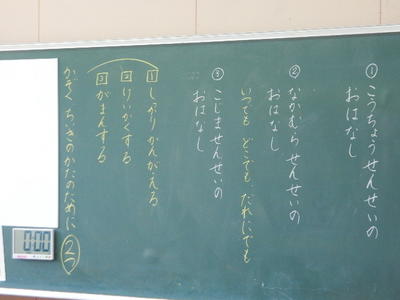 ①こうちょうせんせいの
おはなし
②なかむらせんせいの
おはなし
いつでも どこでも だれにでも
③こしませんせいの
おはなし
1 しっかりかんがえる
2 けいかくする
3 がまんする
かぞく ちいきのかたのために 2つ
0:00